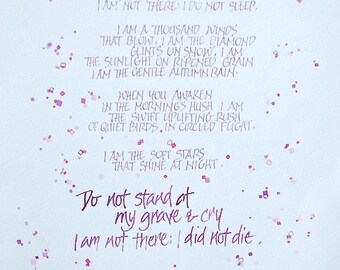 I AM NOT THERE; I DO NOT SLEEP.
I AM A THOUSAND WINDS
THAT BLOW. I AM THE DIAMOND
GLINTS ON SNOW. I AM
THE SUNLIGHT ON RIPENED GRAIN
I AM THE GENTLE AUTUMN RAIN.
WHEN YOU AWAKEN
IN THE MORNINGS HUSH I AM
THE SWIFT UPLIFTING RUSH
OF QUIET BIRDS IN CIRCLED FLIGHT.
I AM THE SOFT STARS
THAT SHINE AT NIGHT.
Do not stand at
my grave & cry
I am not there; I did not die.